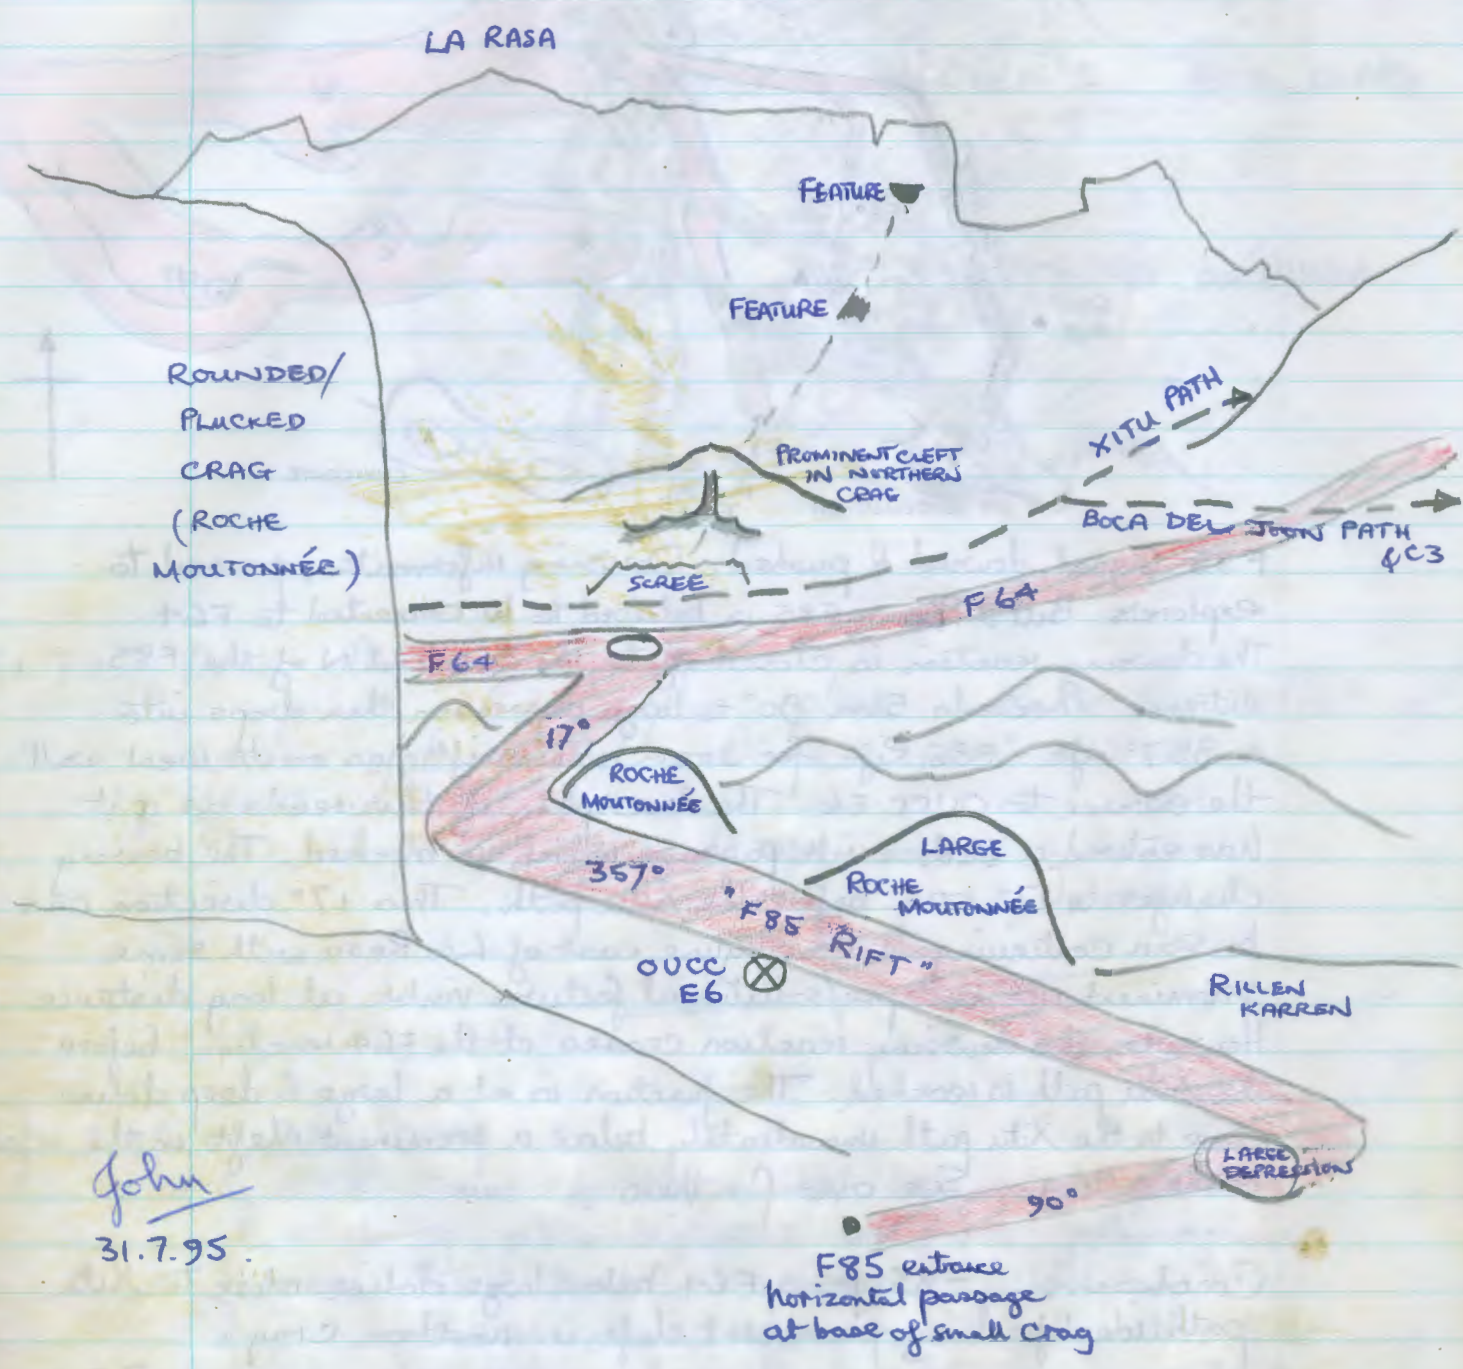 LA RASA
FEATURE
FEATURE
ROUNDED/
PLUCKED
CRAG
(ROCHE
MOUTONNÉE)
XITU PATH
PROMINENT CLEFT
IN NORTHERN
CRAG
BOCA DEL JOON PATH
& C3
SCREE
F64
F64
17°
ROCHE
MOUTONNÉE
LARGE
ROCHE
MOUTONNÉE
357°
"F85 RIFT"
OUCC
E6
RILLEN
KARREN
LARGE
DEPRESSION
90°
John
31.7.95.
F85 entrance
horizontal passage
at base of small crag